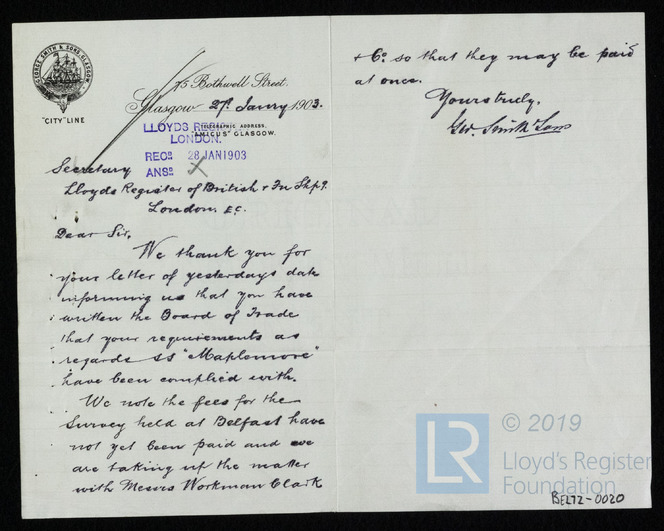 GEORGE SMITH & SONS GLASGOW
"CITY" LINE
75 Bothwell Street.
Glasgow 27th Janry 1903.
TELEGRAPHIC ADDRESS,
"AMICUS" GLASGOW.
LLOYDS REG
LONDON.
RECD 28 JAN 1903
ANSD
Secretary
Lloyds Register of British & Fn Shpg.
London. E.C.
Dear Sir,
We thank you for
your letter of yesterdays date
informing us that you have
written the Board of Trade
that your requirements as
regards SS "Maplemore"
have been complied with.
We note the fees for the
Survey held at Belfast have
not yet been paid and we
are taking up the matter
with Messrs Workman Clark
& Co. so that they may be paid
at once.
Yours truly,
Geo. Smith & Sons
LR © 2019
Lloyd's Register
Foundation
BEL72-0020